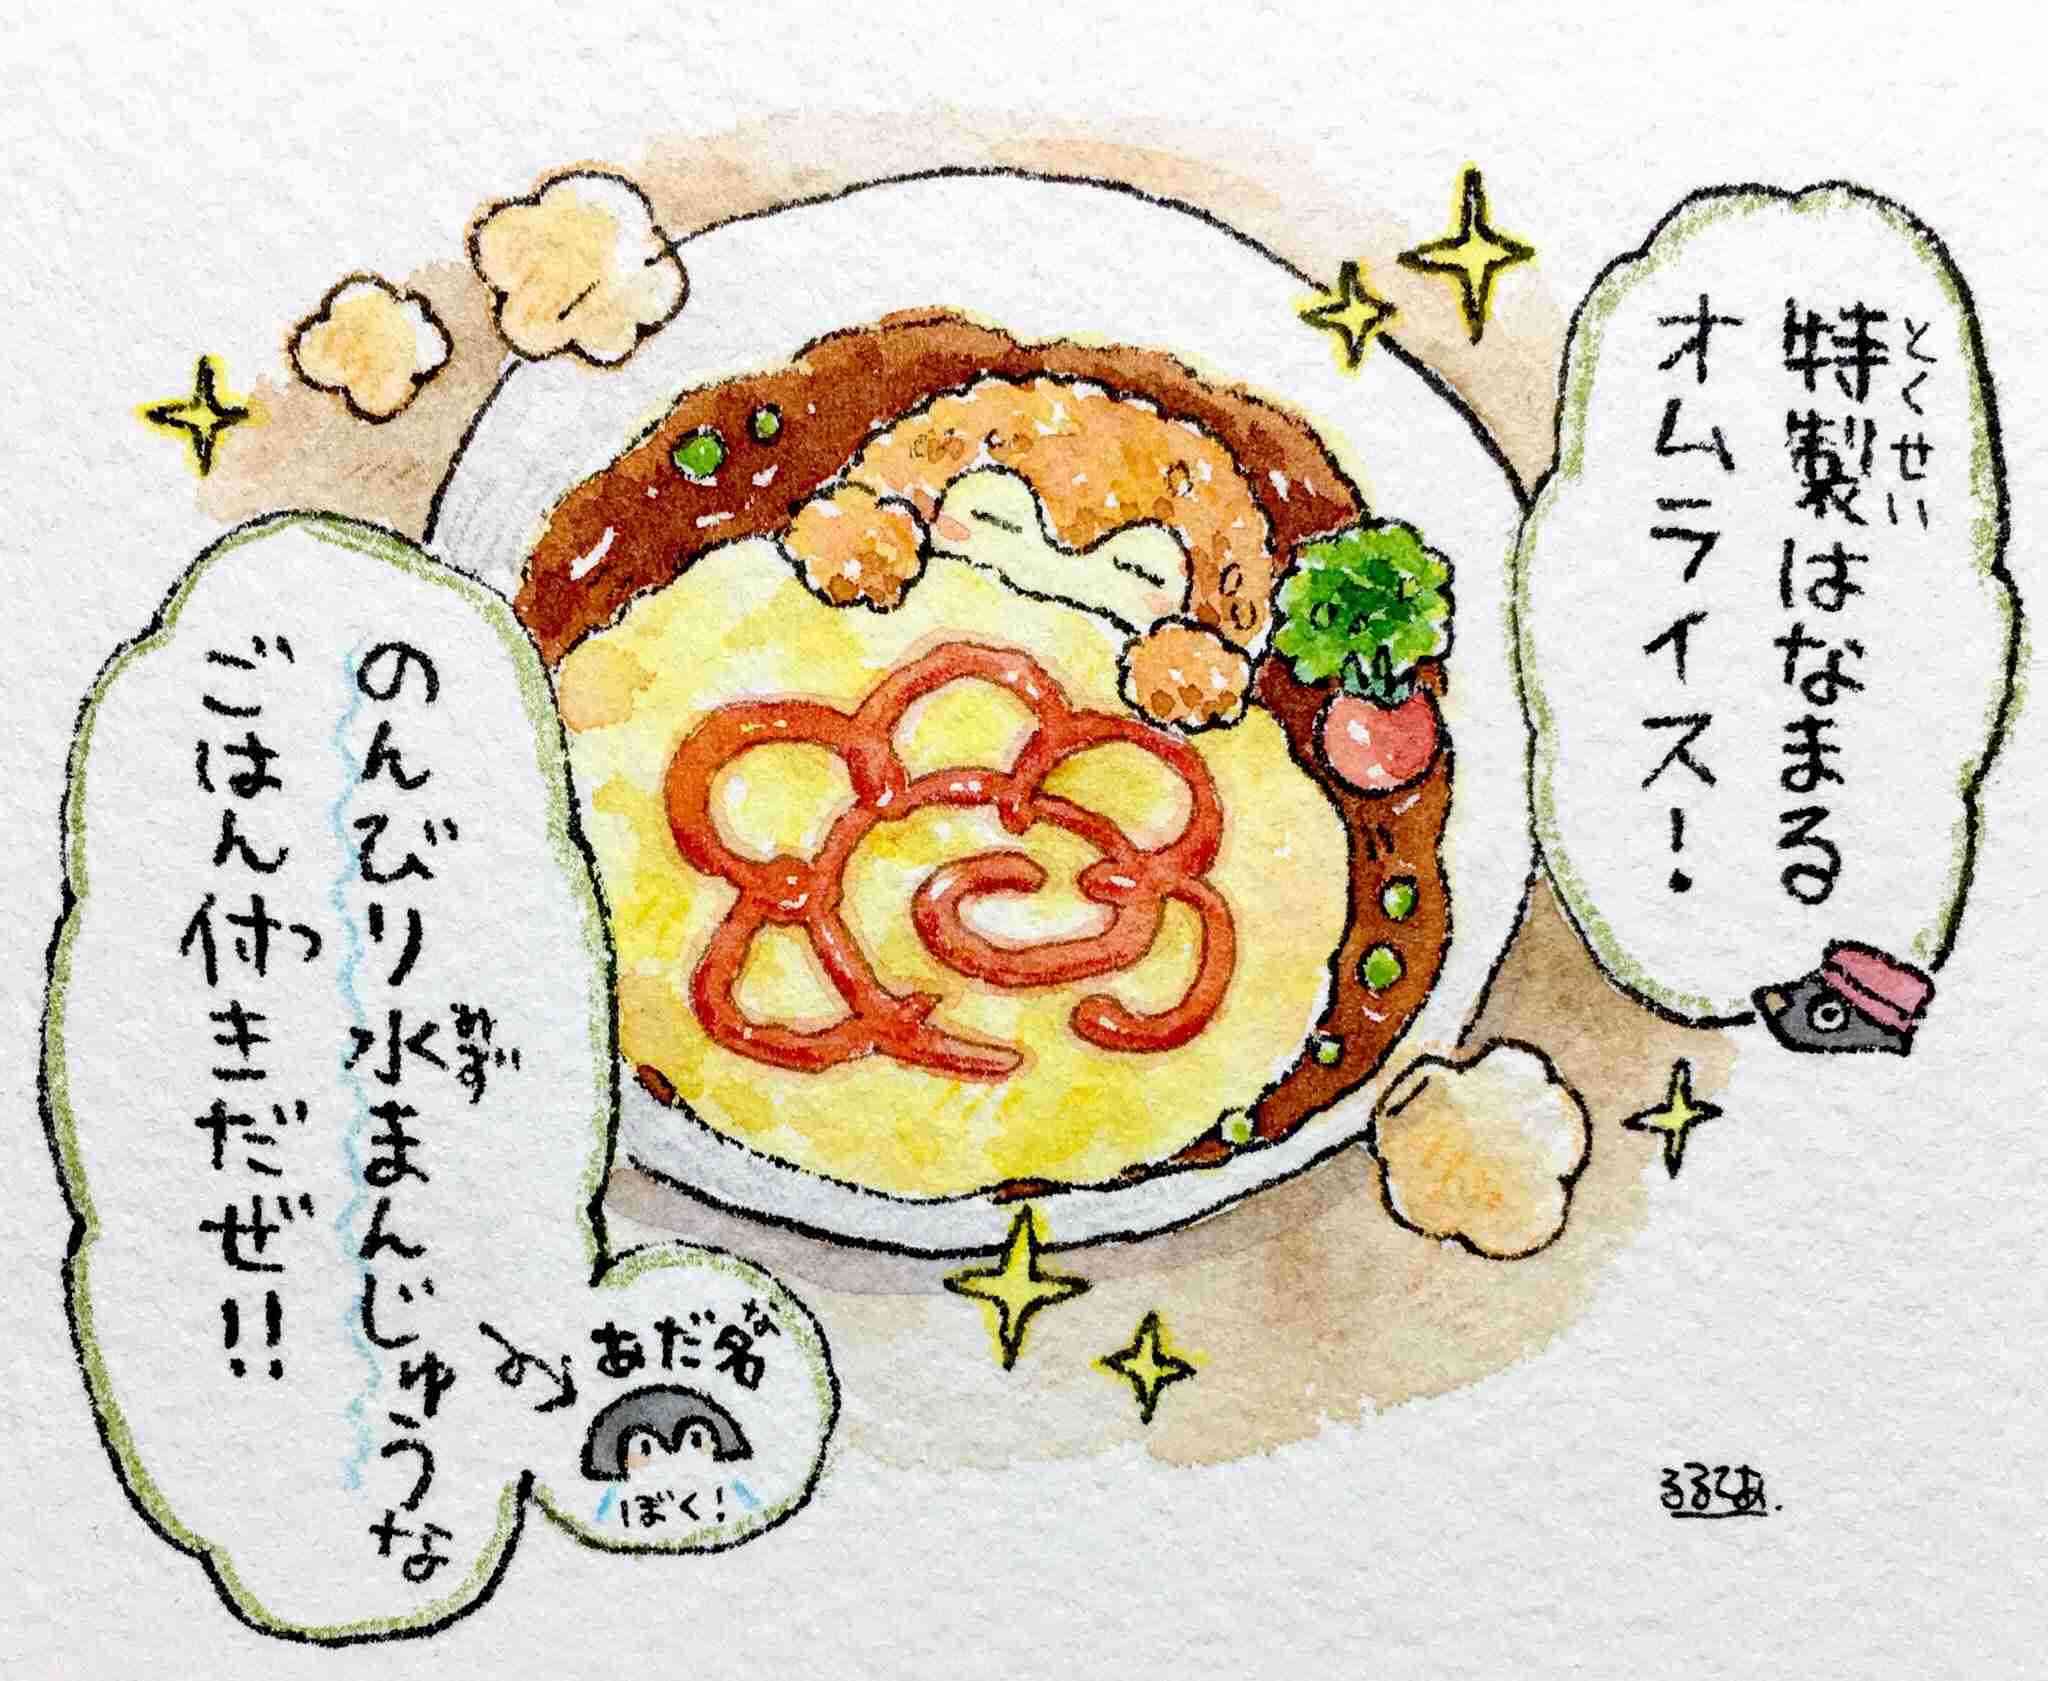 特製はなまる
とくせい
オムライス!
のんびり水まんじゅうな
みず
ごはん付きだぜ!!
つ
あだ名
な
ぼく!